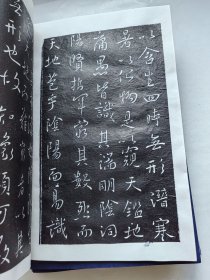 以含生四時無形潛寒
暑以化物是以窺天鑑地
庸愚皆識其端明陰洞
陽賢哲罕窮其數然而
天地苞乎陰陽而易識
形也故知像顯可